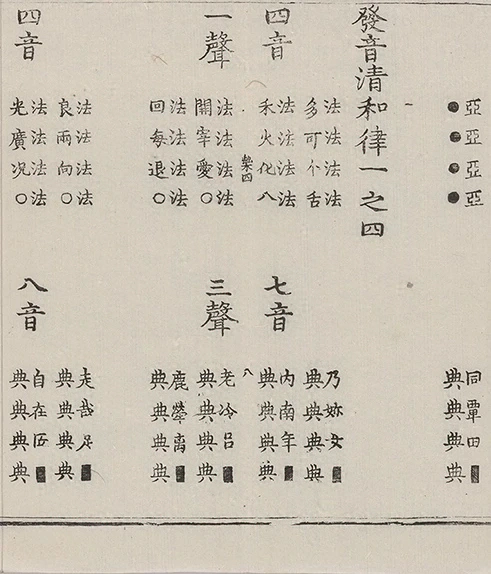 亞亞亞亞
●●●●
同覃田■
典典典典
發音清和律一之四
法法法法
多可个舌
乃妳女■
典典典典
四音
法法法法
禾火化八
七音
內南年■
典典典典
八
一聲
法法法法
開宰愛〇
三聲
老冷呂■
典典典典
法法法法
回每退〇
鹿犖离■
典典典典
法法法法
良兩向〇
走哉足■
典典典典
四音
法法法法
光廣況〇
八音
自在匠■
典典典典